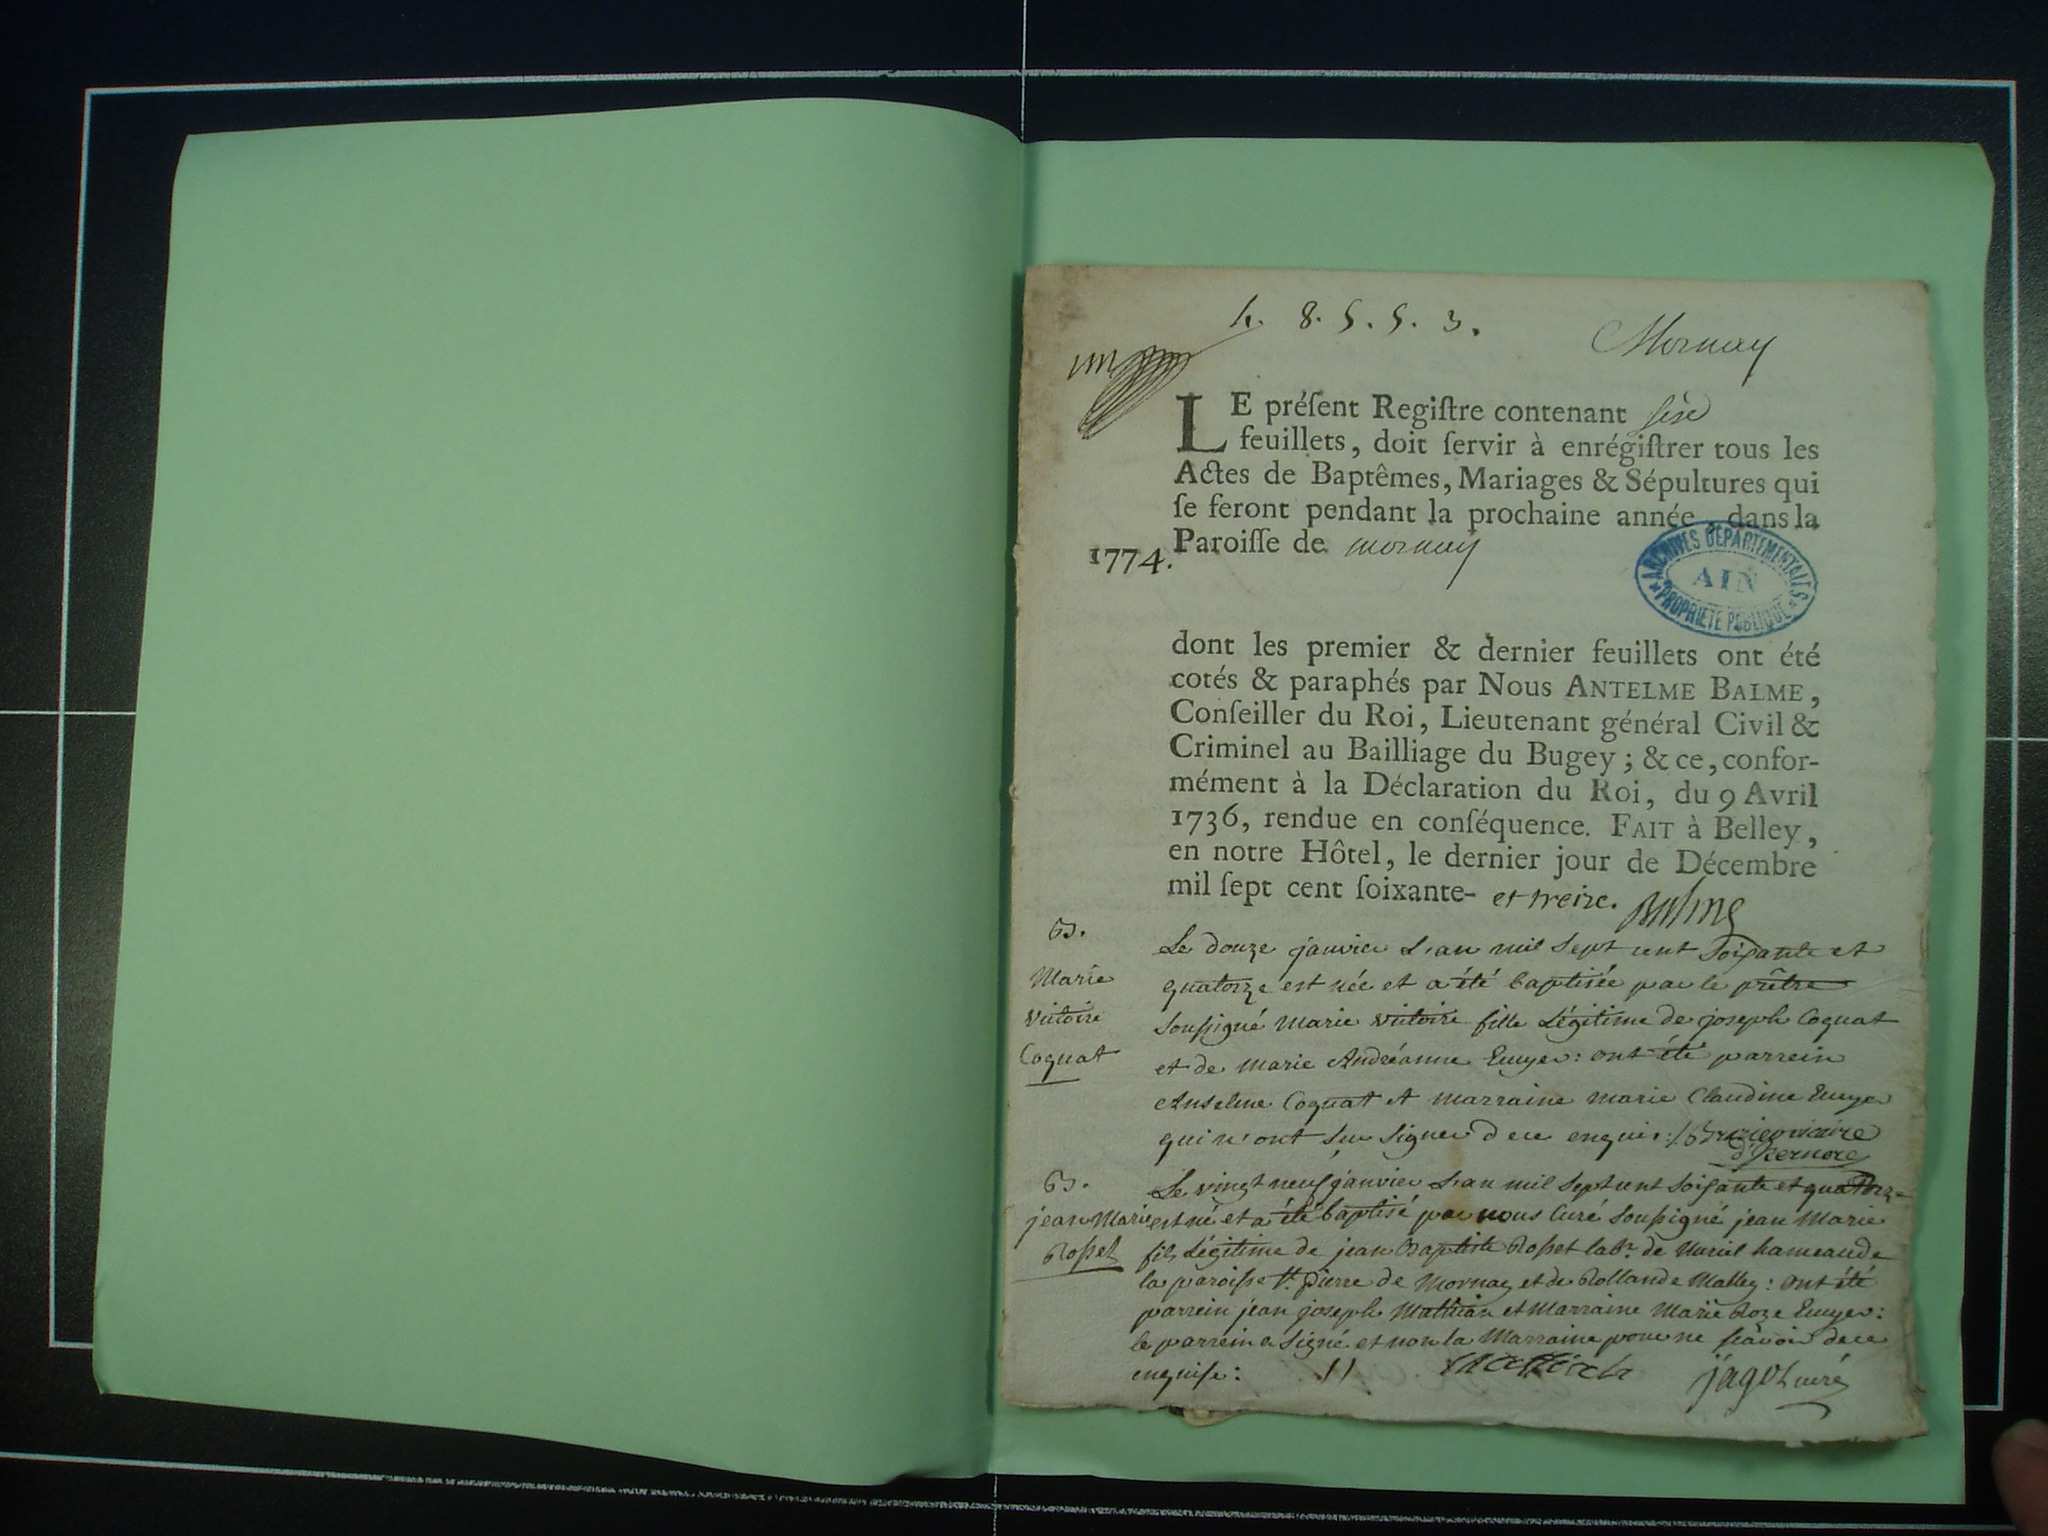 h. 8. 5. 5. 3.
Mornay
un
LE préſent Regiſtre contenant ſixe
feuillets, doit ſervir à enrégiſtrer tous les
Actes de Baptêmes, Mariages & Sépultures qui
ſe feront pendant la prochaine année dans la
1774. Paroiſſe de mornay
ARCHIVES DÉPARTEMENTALES
AIN
PROPRIÉTÉ PUBLIQUE
dont les premier & dernier feuillets ont été
cotés & paraphés par Nous ANTELME BALME,
Conſeiller du Roi, Lieutenant général Civil &
Criminel au Bailliage du Bugey ; & ce, confor-
mément à la Déclaration du Roi, du 9 Avril
1736, rendue en conſéquence. FAIT à Belley,
en notre Hôtel, le dernier jour de Décembre
mil ſept cent ſoixante- et treize. Balme
B.
Marie
victoire
Coquat
Le douze janvier L'an mil sept cent soixante et
quatorze est née et a été baptisée par le prêtre
soussigné Marie victoire fille Légitime de joseph Coquat
et de Marie Andréanne : ont été parrein
Anselme Coquat et marraine marie Claudine
qui n'ont sçu signer de ce enquis : vicaire
d'Izernore
B.
jean Marie
Rosset
Le vingt neuf janvier L'an mil sept cent soixante et quatorze
est né et a été baptisé par nous Curé soussigné jean Marie
fils Légitime de jean Baptiste Rosset labr. de hameau de
la paroisse st. pierre de Mornay et de Rollande Malley : ont été
parrein jean joseph et Marraine Marie Roze :
le parrein a signé et non la Marraine pour ne sçavoir de ce
enquise : jagot curé